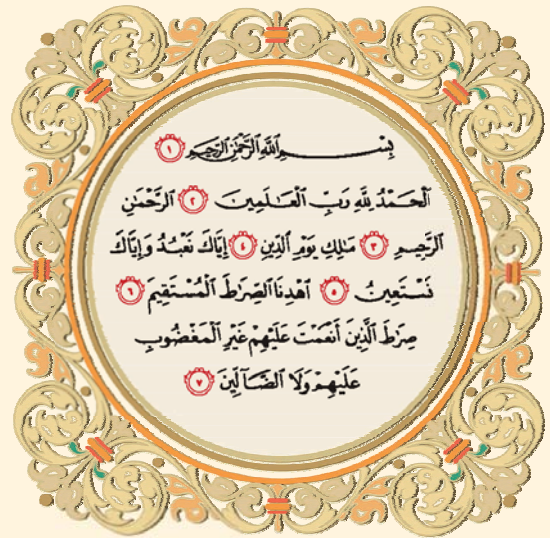 بِسْمِ اللَّهِ الرَّحْمَٰنِ الرَّحِيمِ ١
الْحَمْدُ لِلَّهِ رَبِّ الْعَالَمِينَ ٢ الرَّحْمَٰنِ
الرَّحِيمِ ٣ مَٰلِكِ يَوْمِ الدِّينِ ٤ إِيَّاكَ نَعْبُدُ وَإِيَّاكَ
نَسْتَعِينُ ٥ اهْدِنَا الصِّرَٰطَ الْمُسْتَقِيمَ ٦
صِرَٰطَ الَّذِينَ أَنْعَمْتَ عَلَيْهِمْ غَيْرِ الْمَغْضُوبِ
عَلَيْهِمْ وَلَا الضَّآلِّينَ ٧